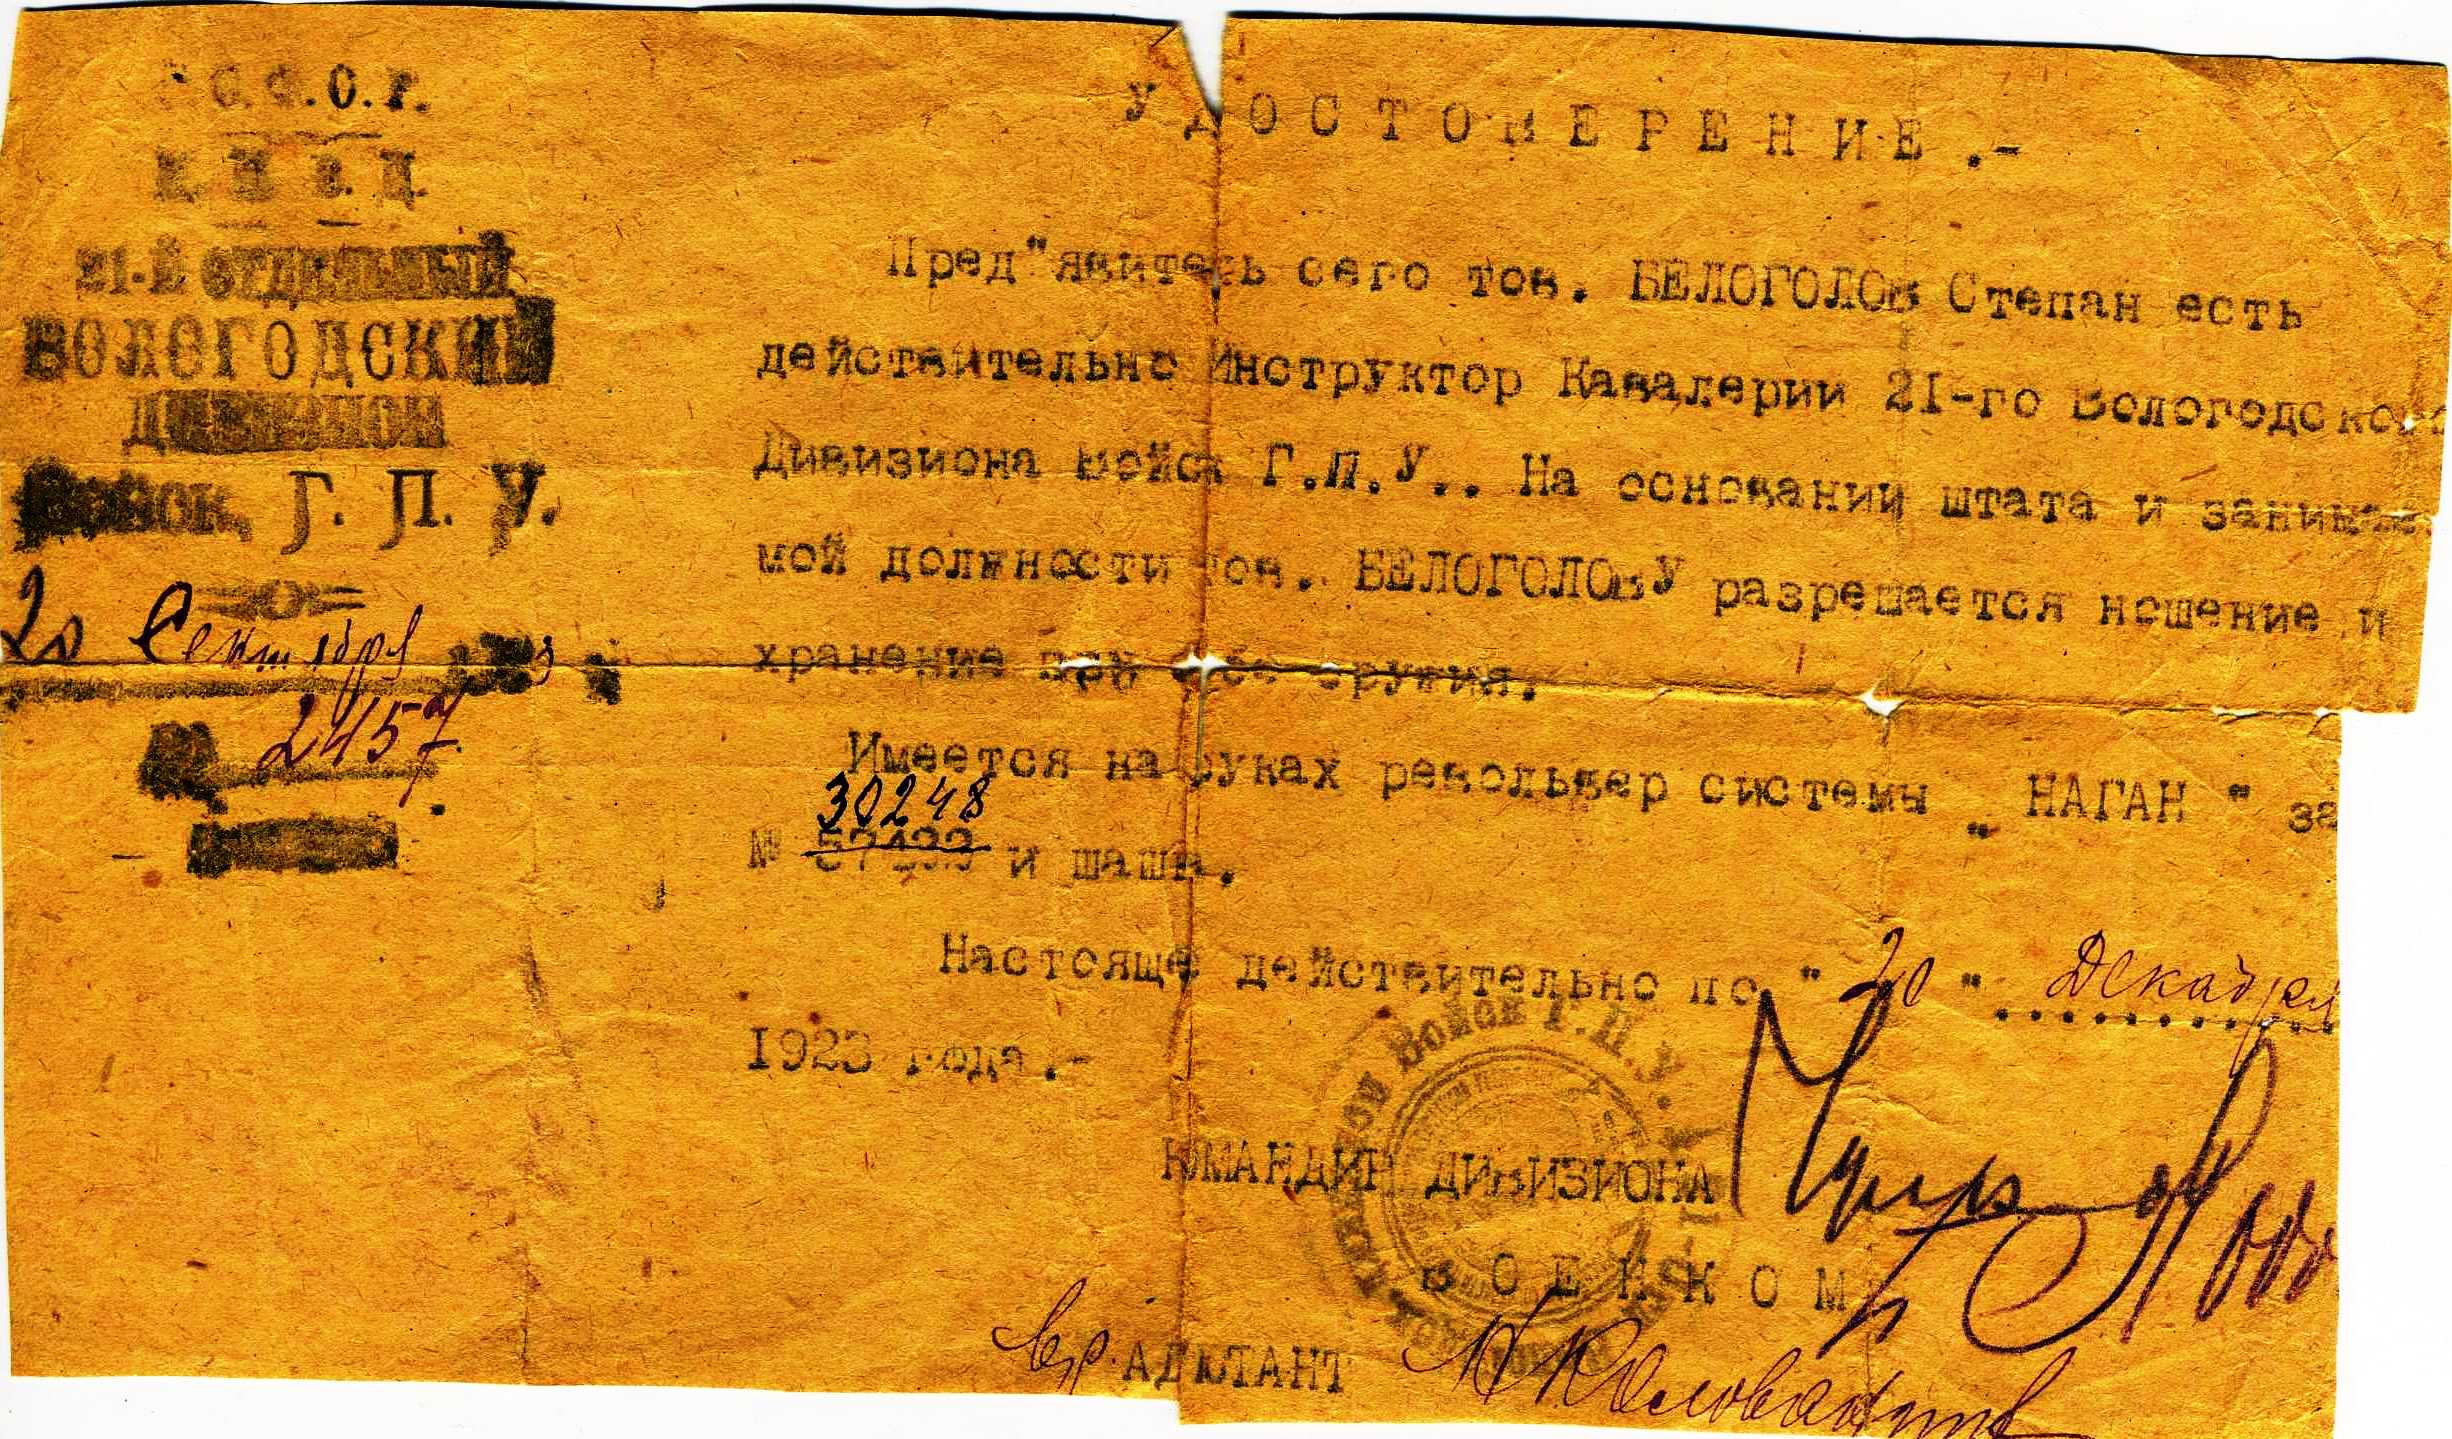 Р.С.Ф.С.Р.
Н. К. В. Д.
21-й отдельный
ВОЛОГОДСКИЙ
ДИВИЗИОН
Войск Г. П. У.
20 Сентября 1923 г.
№ 2457
УДОСТОВЕРЕНИЕ.-
Пред"явитель сего тов. БЕЛОГОЛОВ Степан есть
действительно Инструктор Кавалерии 21-го Вологодского
Дивизиона Войск Г.П.У.. На основании штата и занимае-
мой должности тов. БЕЛОГОЛОВУ разрешается ношение и
хранение при себе оружия.
Имеется на руках револьвер системы „ НАГАН " за
30248
№ 57133 и шашка.
Настоящее действительно по " 20 " Декабря
1923 года.-
Войск Г.П.У.
КОМАНДИР ДИВИЗИОНА
ВОЕНКОМ
Вр. АДЪЮТАНТ